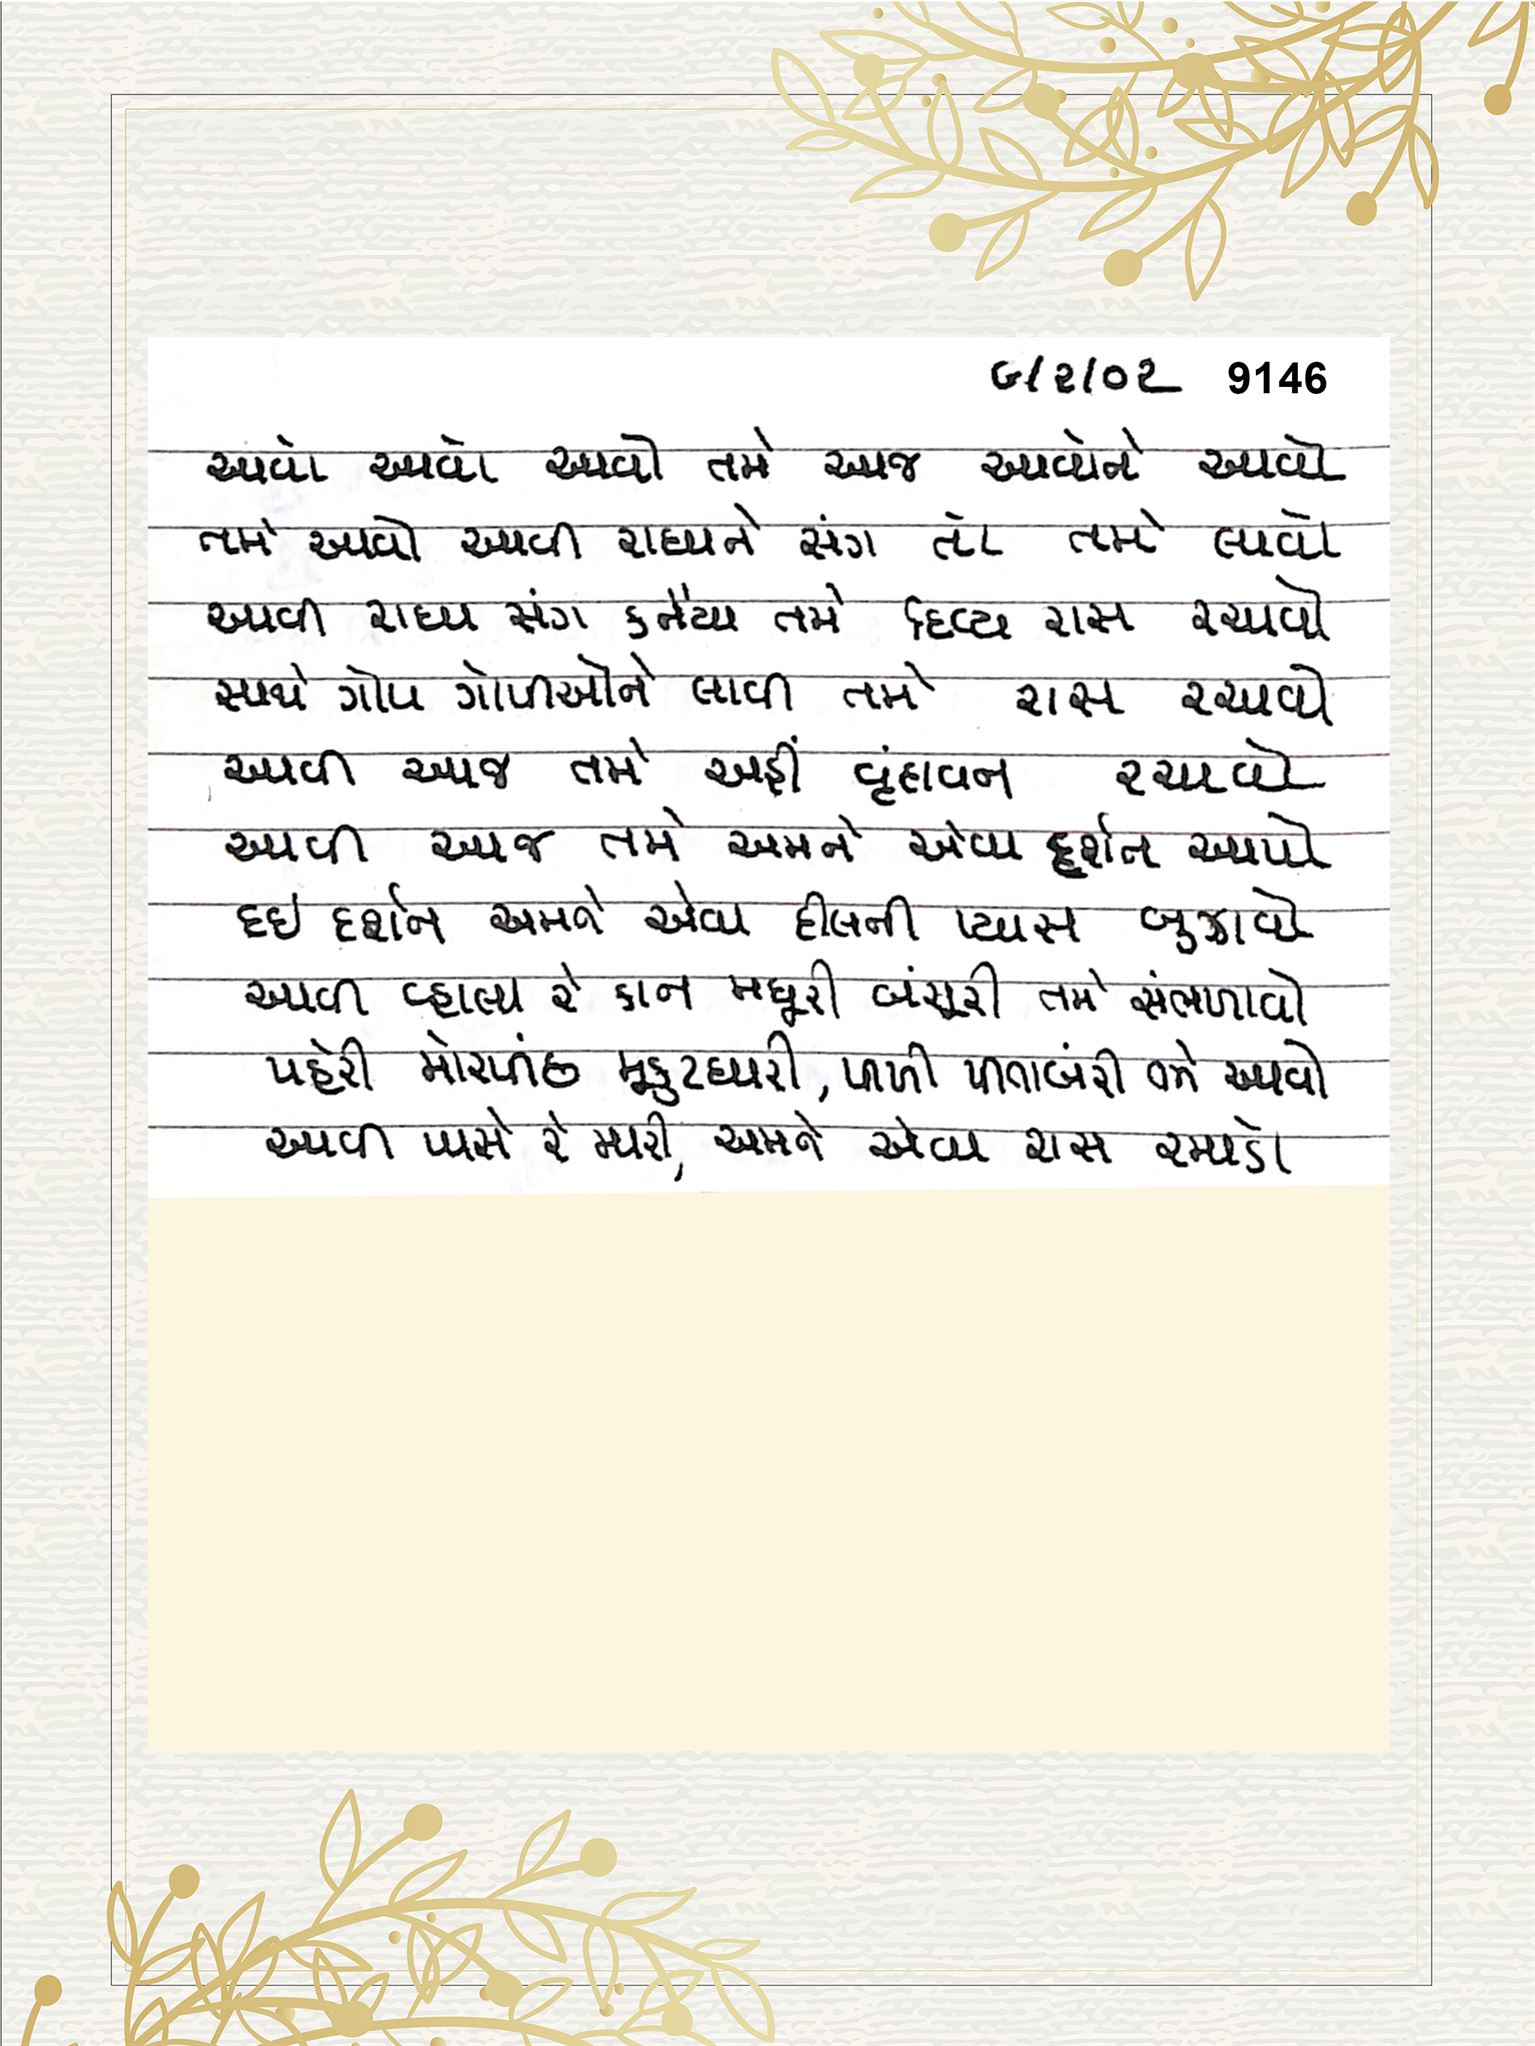 ૭/૨/૦૨ 9146
આવો આવો આવો તમે આજ આવોને આવો
તમે આવો આવી રાધાને સંગ તો તમે લાવો
આવી રાધા સંગ કનૈયા તમે દિવ્ય રાસ રચાવો
સાથે ગોપ ગોપીઓને લાવી તમે રાસ રચાવો
આવી આજ તમે અહીં વૃંદાવન રચાવો
આવી આજ તમે અમને એવા દર્શન આપો
દઇ દર્શન અમને એવા દીલની પ્યાસ બુઝાવો
આવી વ્હાલા રે કાન મધૂરી બંસૂરી તમે સંભળાવો
પહેરી મોરપીંછ મૂકુટધારી, પીતાબંરી આવો
આવી પાસે રે મારી, અમને એવા રાસ રમાડો